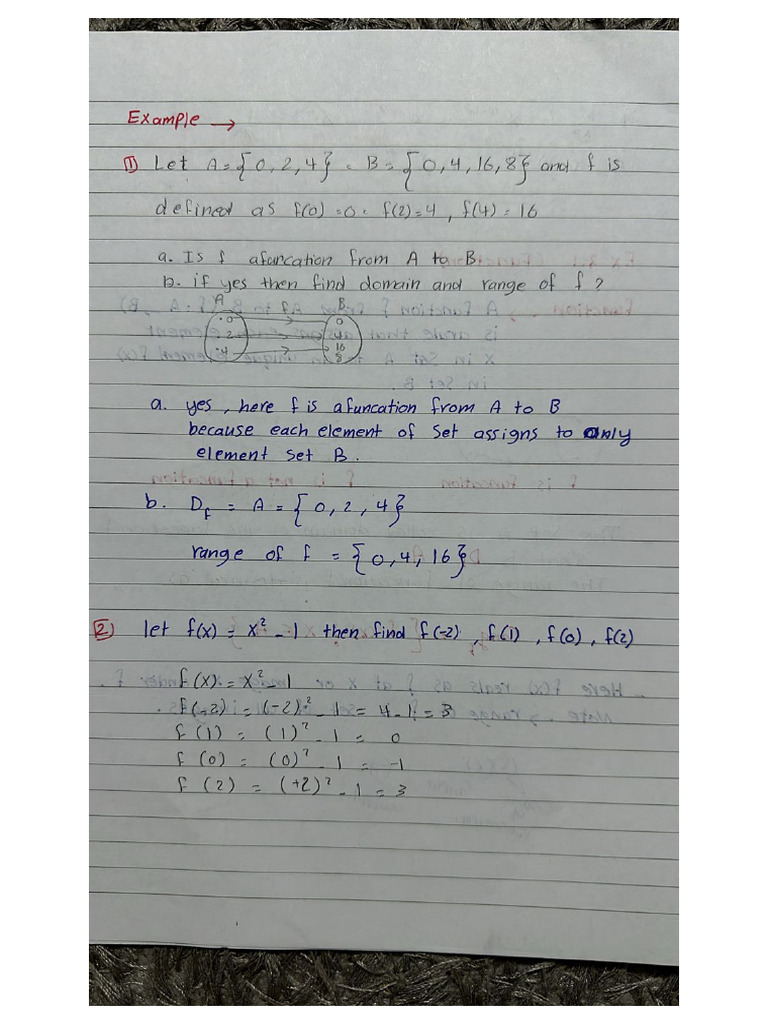 Example →
1) Let A = {0, 2, 4} . B = {0, 4, 16, 8} and f is
defined as f(0) = 0 . f(2) = 4 , f(4) = 16
a. Is f afuncation from A to B.
b. if yes then find domain and range of f ?
A B
.0 0
.2 4
.4 16
8
a. yes, here f is afuncation from A to B
because each element of Set assigns to only
element Set B.
b. D_f = A = {0, 2, 4}
range of f = {0, 4, 16}
2) let f(x) = x² - 1 then find f(-2) , f(1) , f(0) , f(2)
f(x) = x² - 1
f(-2) = (-2)² - 1 = 4 - 1 = 3
f (1) = (1)² - 1 = 0
f (0) = (0)² - 1 = -1
f (2) = (+2)² - 1 = 3